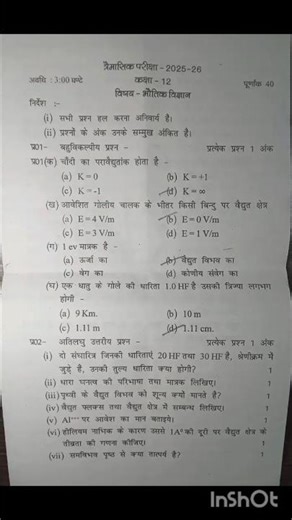 त्रैमासिक परीक्षा - 2025-26
अवधि : 3:00 घण्टे कक्षा - 12 पूर्णांक 40
विषय - भौतिक विज्ञान
निर्देश :-
(i) सभी प्रश्न हल करना अनिवार्य है।
(ii) प्रश्नों के अंक उनके सम्मुख अंकित है।
प्र01- बहुविकल्पीय प्रश्न - प्रत्येक प्रश्न 1 अंक
प्र01(क) चाँदी का परावैद्युतांक होता है -
(a) K = 0 (b) K = +1
(c) K = -1 (d) K = ∞
(ख) आवेशित गोलीय चालक के भीतर किसी बिन्दु पर वैद्युत क्षेत्र
(a) E = 4 V/m (b) E = 0 V/m
(c) E = 3 V/m (d) E = 1 V/m
(ग) 1 ev मात्रक है -
(a) ऊर्जा का (b) वैद्युत विभव का
(c) वेग का (d) कोणीय संवेग का
(घ) एक धातु के गोले की धारिता 1.0 HF है उसकी त्रिज्या लगभग
होगी -
(a) 9 Km. (b) 10 m
(c) 1.11 m (d) 1.11 cm.
प्र02- अतिलघु उत्तरीय प्रश्न - प्रत्येक प्रश्न 1 अंक
(i) दो संधारित्र जिनकी धारिताएं 20 HF तथा 30 HF है, श्रेणीक्रम में
जुड़े है, उनकी तुल्य धारिता क्या होगी? 1
(ii) धारा घनत्व की परिभाषा तथा मात्रक लिखिए। 1
(iii) पृथ्वी के वैद्युत विभव को शून्य क्यों मानते है? 1
(iv) वैद्युत फ्लक्स तथा वैद्युत क्षेत्र में सम्बन्ध लिखिए। 1
(v) Al⁺⁺⁺ पर आवेश का मान बताइये। 1
(vi) हीलियम नाभिक के कारण उससे 1A⁰ की दूरी पर वैद्युत क्षेत्र के
तीव्रता की गणना कीजिए। 1
(vii) समविभव पृष्ठ से क्या तात्पर्य है? 1
InShOt